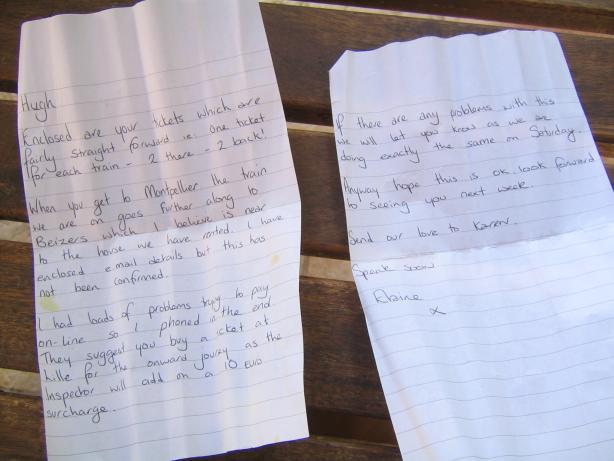 Hugh
Enclosed are your tickets which are
fairly straight forward ie. one ticket
for each train - 2 there - 2 back!
When you get to Montpellier the train
we are on goes further along to
Beizers which I believe is near
to the house we have rented. I have
enclosed email details but this has
not been confirmed.
I had loads of problems trying to pay
on-line so I phoned in the end
They suggest you buy a icket at
lille for the onward jouney as the
Inspector will add on a 10 EURO
surcharge.
If there are any problems with this
we will let you know as we are
doing exactly the same on Saturday.
Anyway hope this is ok. look forward
to seeing you next week.
Send our love to Karen.
Speak soon
Elaine
x